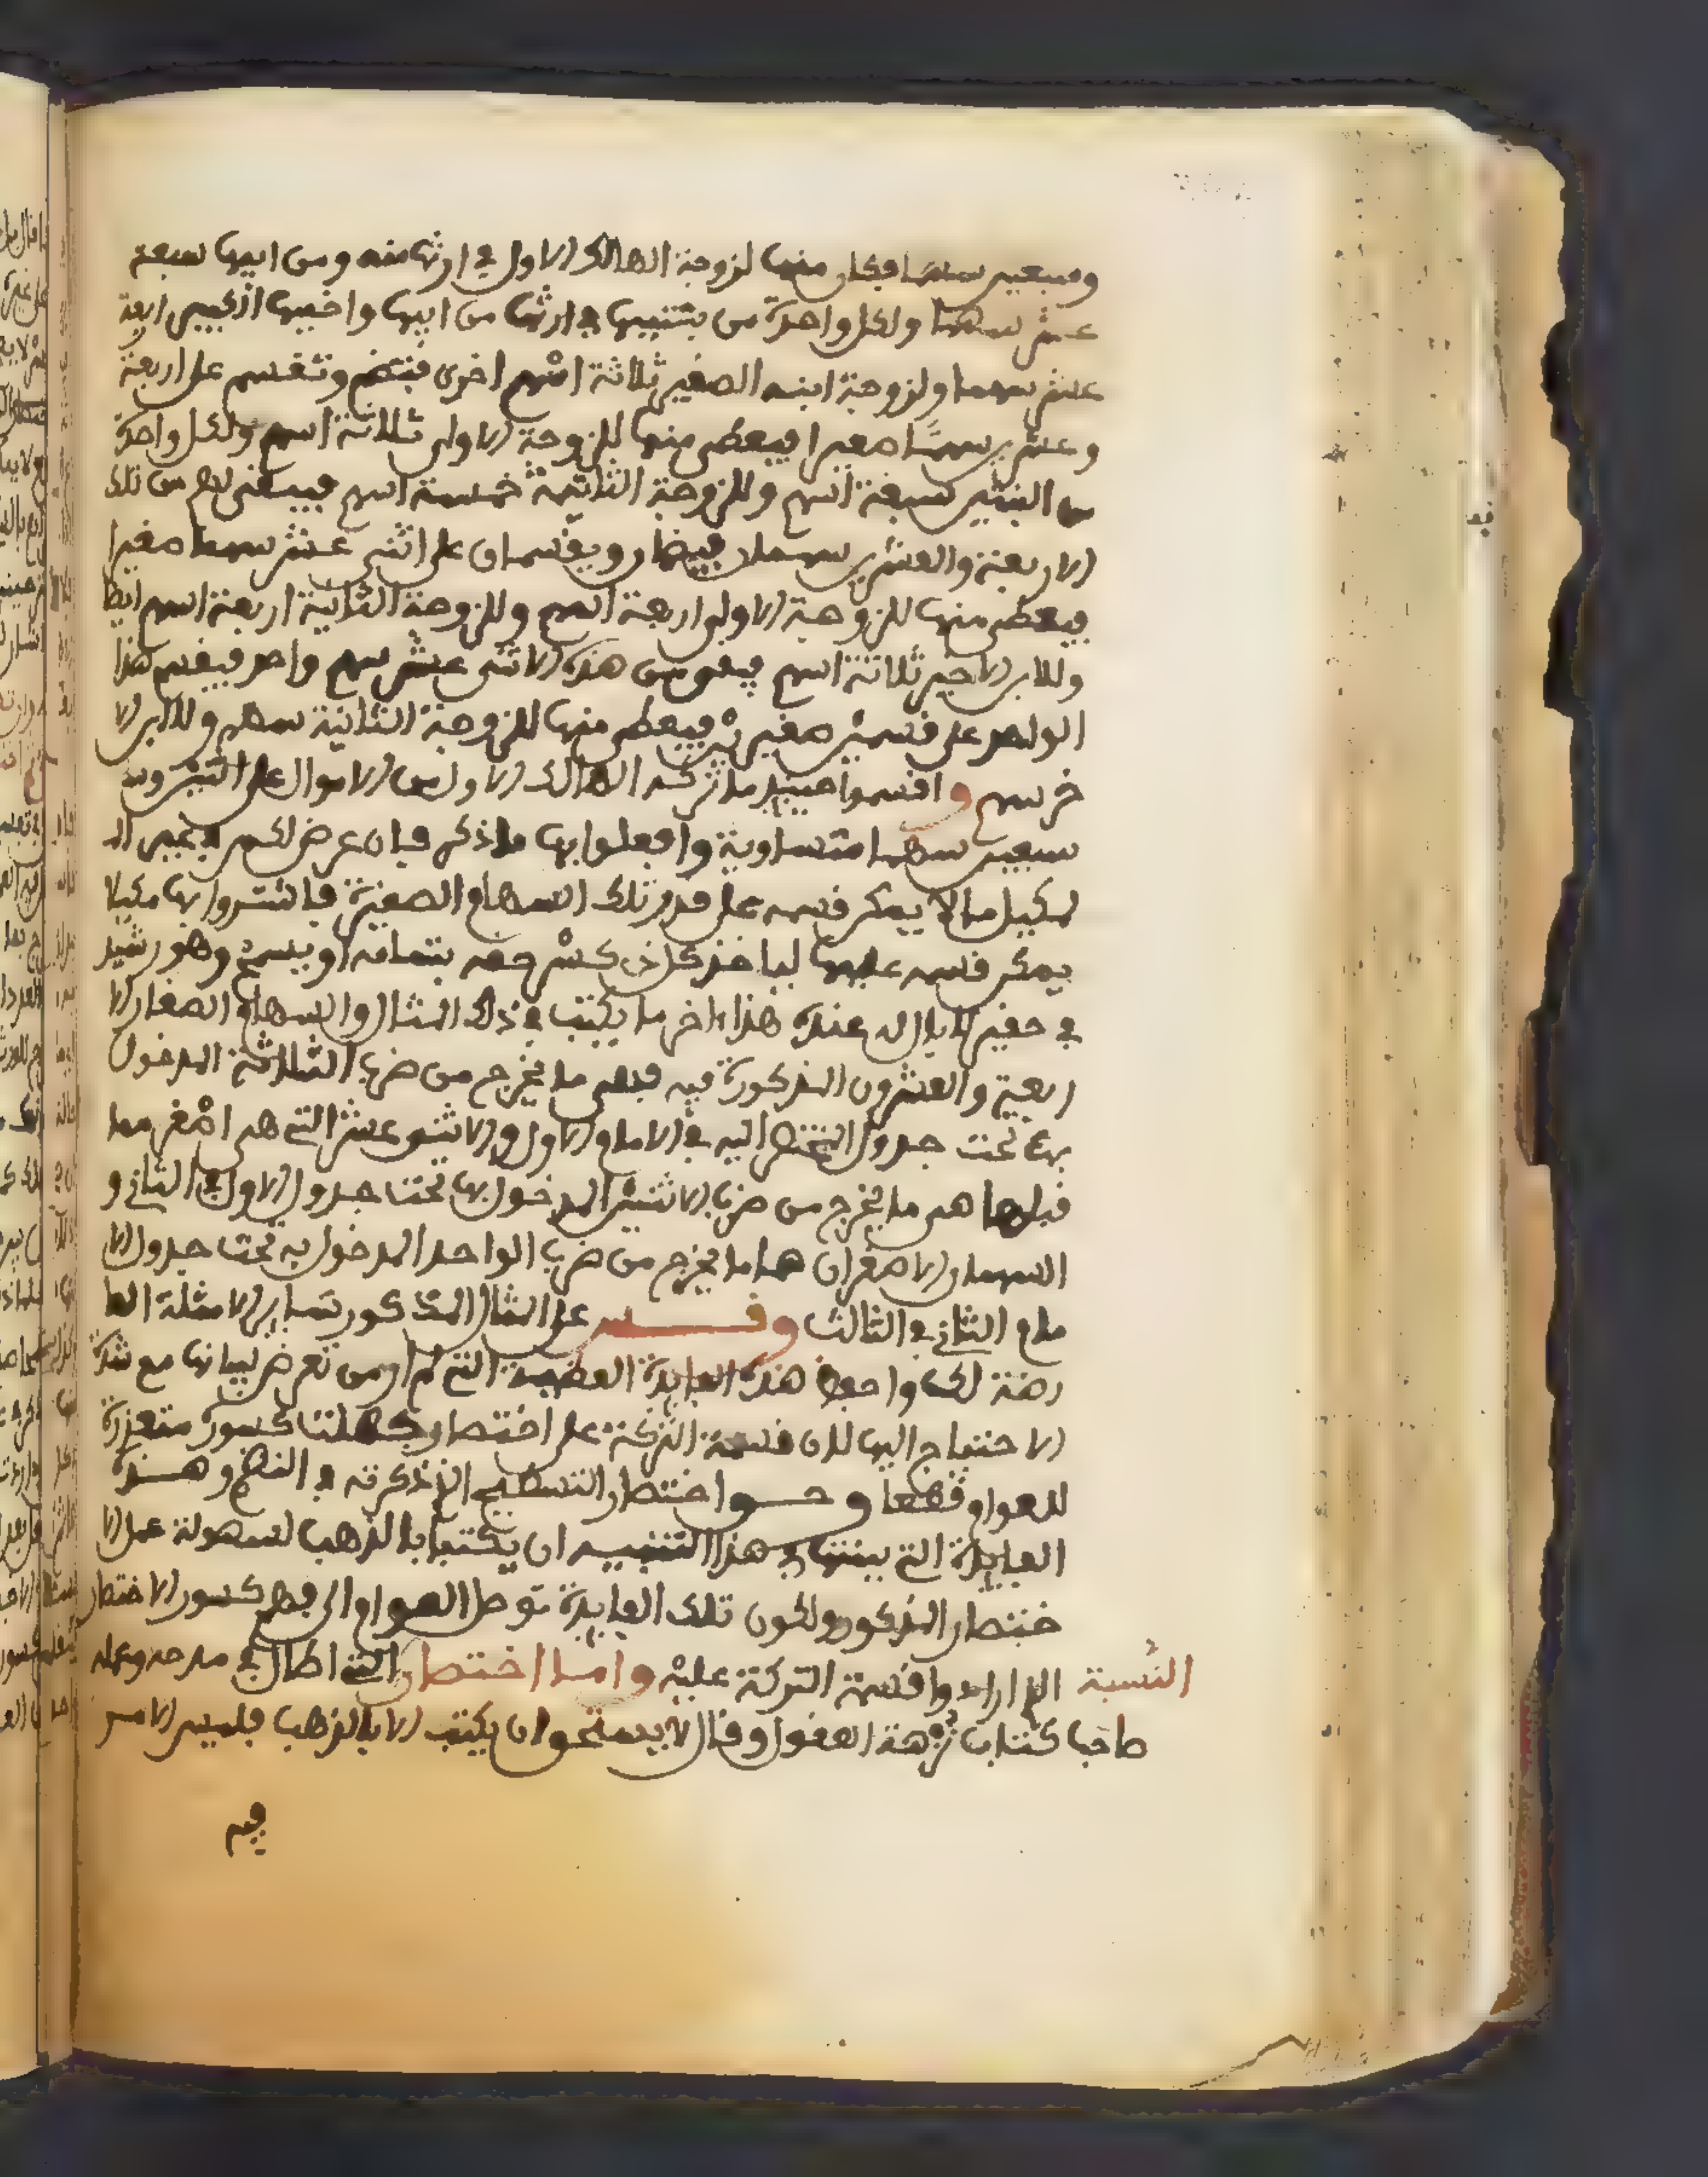 وسبعين سهما فكان منها لزوجة الهالك الاول في ارثها منه ومن ابيها سبعة
عشر سهما ولكل واحدة من بنتيها في ارثها من ابيها واخيها اربعة
عشر سهما ولزوجة ابنه الصغير ثلاثة اسهم اخرى فتضم وتقسم على اربعة
وعشرين سهما صغيرا فيعطى منها للزوجة الاولى ثلاثة اسهم ولكل واحدة
من البنتين سبعة اسهم وللزوجة الثانية خمسة اسهم فيبقى لهم من تلك
الاربعة والعشرين سهمان فيضمان ويقسمان على اثنى عشر سهما صغيرا
فيعطى منها للزوجة الاولى اربعة اسهم وللزوجة الثانية اربعة اسهم ايضا
وللابن الاخير ثلاثة اسهم فيبقى من هذه الاثنى عشر سهم واحد فيقسم هذا
الواحد على قسمين صغيرين فيعطى منها للزوجة الثانية سهم وللابن الا
خر سهم واقسموا حينئذ ما تركه الهالك الاول من الاموال على اثنين و
سبعين سهما متساوية وافعلوا بها ما ذكر فان عرض لكم في غير الـ
لمكيل ما لا يمكن قسمه على قدر تلك السهام الصغيرة فاشتروا بها مكيلا
يمكن قسمه عليها لياخذ كل ذي كسر حقه بتمامه او يسمح وهو رشيد
في حقير لا بال له عنده هذا اخر ما يكتب في ذلك المثال والسهام الصغار الا
ربعة والعشرون المذكورة فيه فهي ما يخرج من ضرب الثلاثة المدخول
بها تحت جدول المختصر اليه في الامام الاول والاثنى عشر التي هي اصغر مما
قبلها هي ما يخرج من ضرب الاثنين المدخول بها تحت جدول الاول في الثاني و
السهمان الاصغران هما ما يخرج من ضرب الواحد المدخول به تحت جدول الا
مام الثاني في الثالث وقس على المثال المذكور سائر الامثلة العا
رضة لك واحفظ هذه الفايدة العظيمة التي لم ار من تعرض لبيانها مع شدة
الاحتياج اليها لان قسمة التركة على اختصار كسور متعذرة
للعوام قطعا وحق اختصار التسطيح الذي ذكرته في النظم وهذه
الفايدة التي بينتها في هذا التنبيه ان يكتبا بالذهب لسهولة عمل الا
ختصار المذكور ولكون تلك الفايدة توصل العوام الى فهم كسور الاختصار
النسبة اذا ارادوا قسمة التركة عليه واما اختصار التي اطال في مدحه وعمله
صاحب كتاب نزهة العقول وقال لا يستحق ان يكتب الا بالذهب فليس الامر
فيه